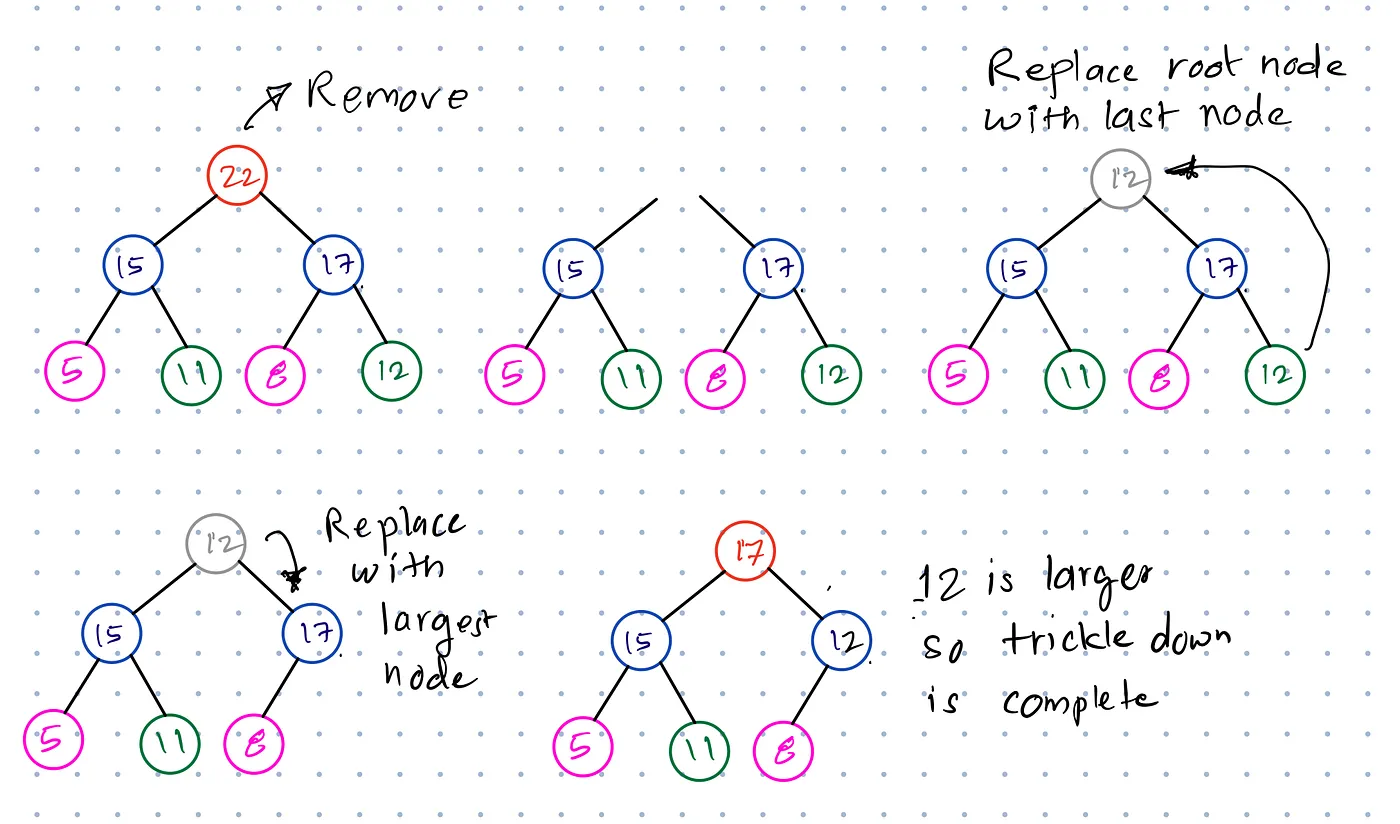 Remove
22
15 17
5 11 8 12
15 17
5 11 8 12
Replace root node
with last node
12
15 17
5 11 8 12
12
15 17
5 11 8
Replace
with
largest
node
17
15 12
5 11 8
12 is larger
so trickle down
is complete